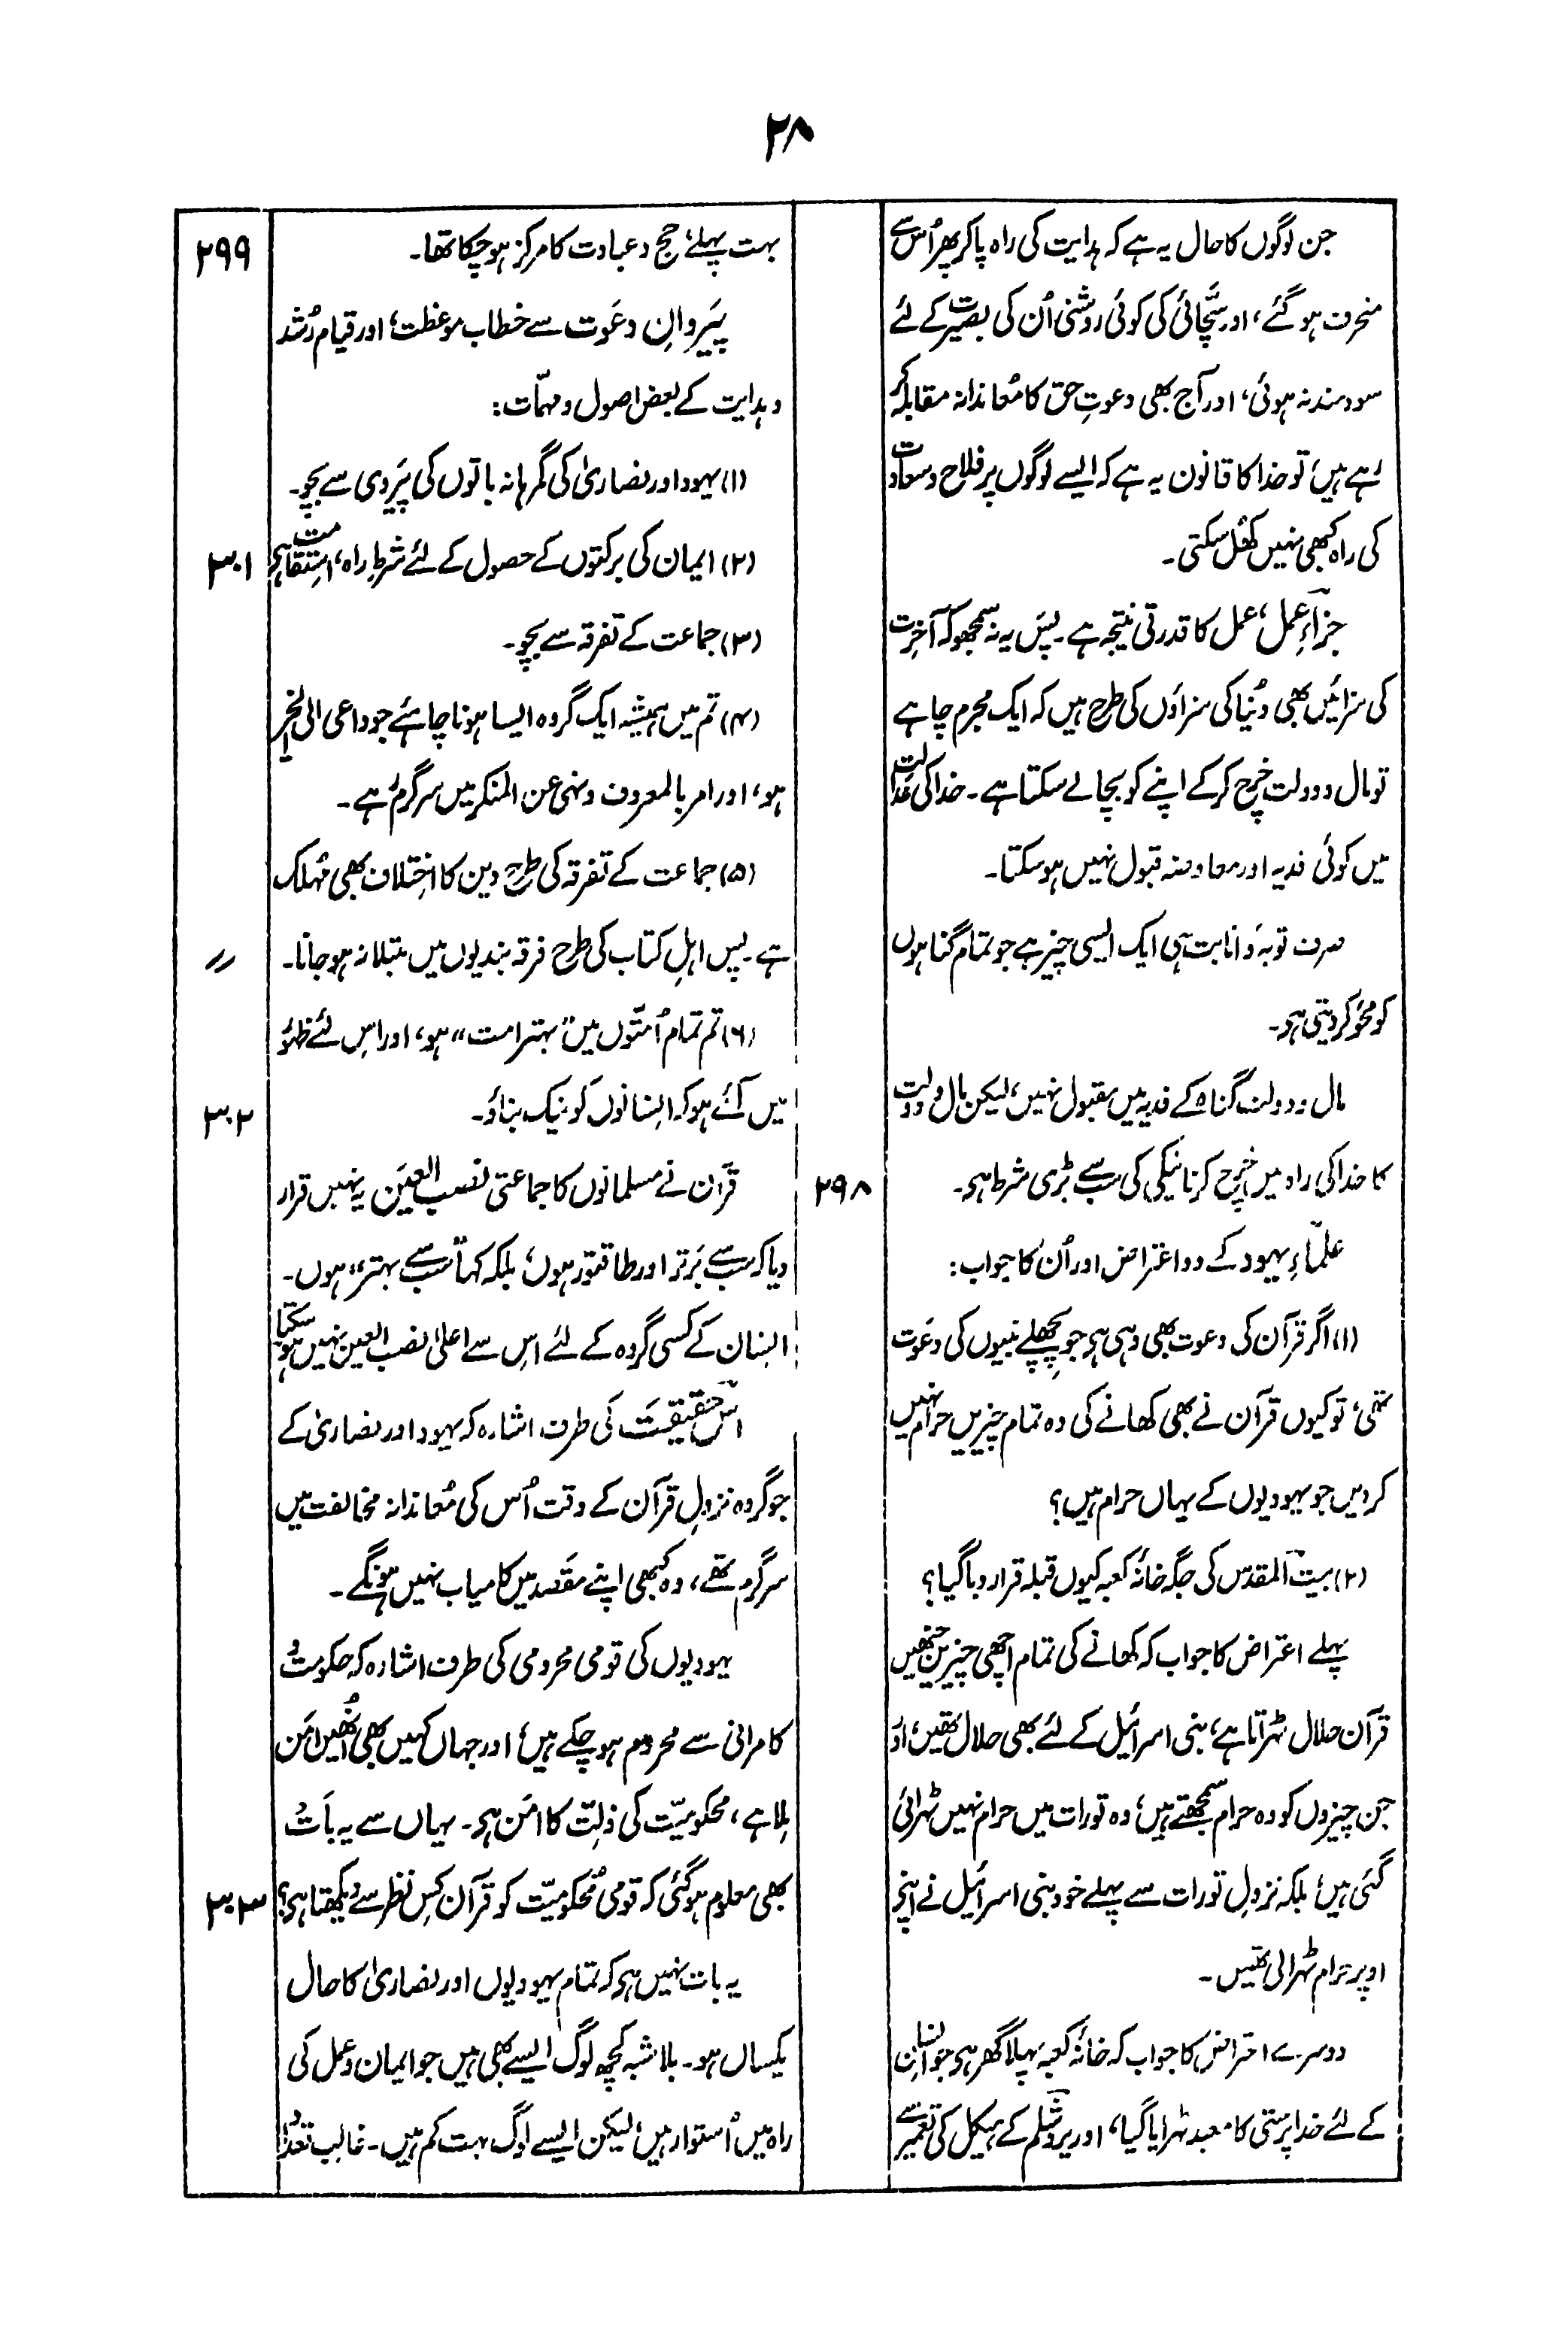 ۲۸
جن لوگوں کا حال یہ ہے کہ ہدایت کی راہ پاکر پھر اُس سے
منحرف ہو گئے، اور سچّائی کی کوئی روشنی اُن کی بصیرت کے لئے
سودمند نہ ہوئی، اور آج بھی دعوتِ حق کا مُعاندانہ مقابلہ کر
رہے ہیں، تو خدا کا قانون یہ ہے کہ ایسے لوگوں پر فلاح و سعادت
کی راہ کبھی نہیں کُھل سکتی۔
جزاءِ عمل، عمل کا قدرتی نتیجہ ہے۔ پس یہ نہ سمجھو کہ آخرت
کی سزائیں بھی دُنیا کی سزاؤں کی طرح ہیں کہ ایک مجرم چاہے
تو مال و دولت خرچ کرکے اپنے کو بچالے سکتا ہے۔ خدا کی عدالت
میں کوئی فدیہ اور معاوضہ قبول نہیں ہو سکتا۔
صرف توبہ و انابت ہی ایک ایسی چیز ہے جو تمام گناہوں
کو محو کر دیتی ہو۔
مال و دولت گناہ کے فدیہ میں مقبول نہیں، لیکن مال و دولت
کا خدا کی راہ میں خرچ کرنا نیکی کی سب سے بڑی شرط ہو۔ ۲۹۸
علماءِ یہود کے دو اعتراض اور اُن کا جواب:
(۱) اگر قرآن کی دعوت بھی وہی ہو جو پچھلے نبیوں کی دعوت
تھی، تو کیوں قرآن نے بھی کھانے کی وہ تمام چیزیں حرام نہیں
کردیں جو یہودیوں کے یہاں حرام ہیں؟
(۲) بیت المقدس کی جگہ خانۂ کعبہ کیوں قبلہ قرار دیا گیا؟
پہلے اعتراض کا جواب کہ کھانے کی تمام اچھی چیزیں جنھیں
قرآن حلال ٹہراتا ہے، بنی اسرائیل کے لئے بھی حلال تھیں، اور
جن چیزوں کو وہ حرام سمجھتے ہیں، وہ تورات میں حرام نہیں ٹہرائی
گئی ہیں، بلکہ نزولِ تورات سے پہلے خود بنی اسرائیل نے اپنے
اوپر حرام ٹہرالی تھیں۔
دوسرے اعتراض کا جواب کہ خانۂ کعبہ پہلا گھر ہو جو انسان
کے لئے خدا پرستی کا معبد ٹہرایا گیا، اور یروشلم کے ہیکل کی تعمیر سے
بہت پہلے، حج و عبادت کا مرکز ہو چکا تھا۔ ۲۹۹
پیَروانِ دعَوت سے خطاب موعظت، اور قیام رُشد
و ہدایت کے بعض اصول و مہمّات:
(۱) یہود اور نصاریٰ کی گمراہانہ باتوں کی پیَروی سے بچو۔
(۲) ایمان کی برکتوں کے حصول کے لئے شرطِ راہ، استقامت ہو ۳۰۱
(۳) جماعت کے تفرقہ سے بچو۔
(۴) تم میں ہمیشہ ایک گروہ ایسا ہونا چاہئے جو داعی الی الخیر
ہو، اور امر بالمعروف و نہی عن المنکر میں سرگرم رہے۔
(۵) جماعت کے تفرقہ کی طرح دین کا اختلاف بھی مُہلک
ہے۔ پس اہلِ کتاب کی طرح فرقہ بندیوں میں مبتلا نہ ہوجانا۔ 〃
(۶) تم تمام اُمتّوں میں "بہتر امت" ہو، اور اس لئے ظہور
میں آئے ہو کہ انسانوں کو نیک بناؤ۔ ۳۰۲
قرآن نے مسلمانوں کا جماعتی نصب العین یہ نہیں قرار
دیا کہ سب سے برَتر اور طاقتور ہوں، بلکہ کہا "سب سے بہتر" ہوں۔
انسان کے کسی گروہ کے لئے اس سے اعلیٰ نصب العین نہیں ہو سکتا
اس حقیقت کی طرف اشارہ کہ یہود اور نصاریٰ کے
جو گروہ نزولِ قرآن کے وقت اُس کی مُعاندانہ مخالفت میں
سرگرم تھے، وہ کبھی اپنے مقصد میں کامیاب نہیں ہونگے۔
یہودیوں کی قومی محرومی کی طرف اشارہ کہ حکومت و
کامرانی سے محروم ہو چکے ہیں، اور جہاں کہیں بھی اُنھیں امن
ملا ہے، محکومیّت کی ذلّت کا امَن ہو۔ یہاں سے یہ بات
بھی معلوم ہوگئی کہ قومی محکومیّت کو قرآن کس نظر سے دیکھتا ہو؟ ۳۰۳
یہ بات نہیں ہو کہ تمام یہودیوں اور نصاریٰ کا حال
یکساں ہو۔ بلاشبہ کچھ لوگ ایسے بھی ہیں جو ایمان و عمل کی
راہ میں اُستوار ہیں، لیکن ایسے لوگ بہت کم ہیں۔ غالب تعداد